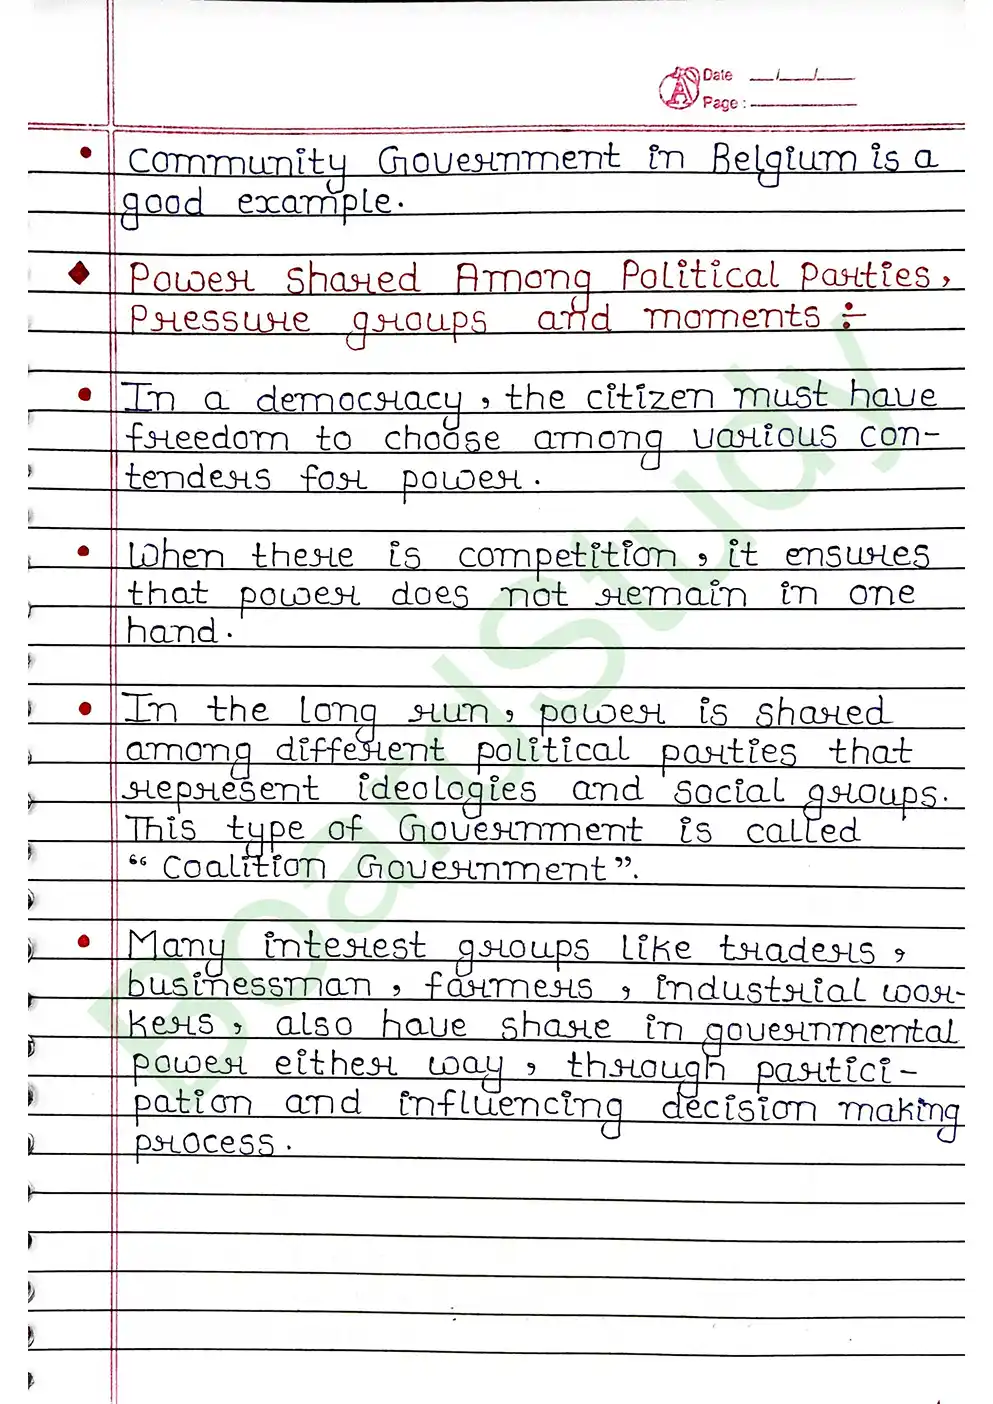 Date __/__/__
Page : ______
• Community Government in Belgium is a
good example.
◆ Power Shared Among Political Parties,
Pressure groups and moments ÷
• In a democracy, the citizen must have
freedom to choose among various con-
tenders for power.
• When there is competition, it ensures
that power does not remain in one
hand.
• In the long run, power is shared
among different political parties that
represent ideologies and social groups.
This type of Government is called
“Coalition Government”.
• Many interest groups like traders,
businessman, farmers, industrial wor-
kers, also have share in governmental
power either way, through partici-
pation and influencing decision making
process.
BoardStudy